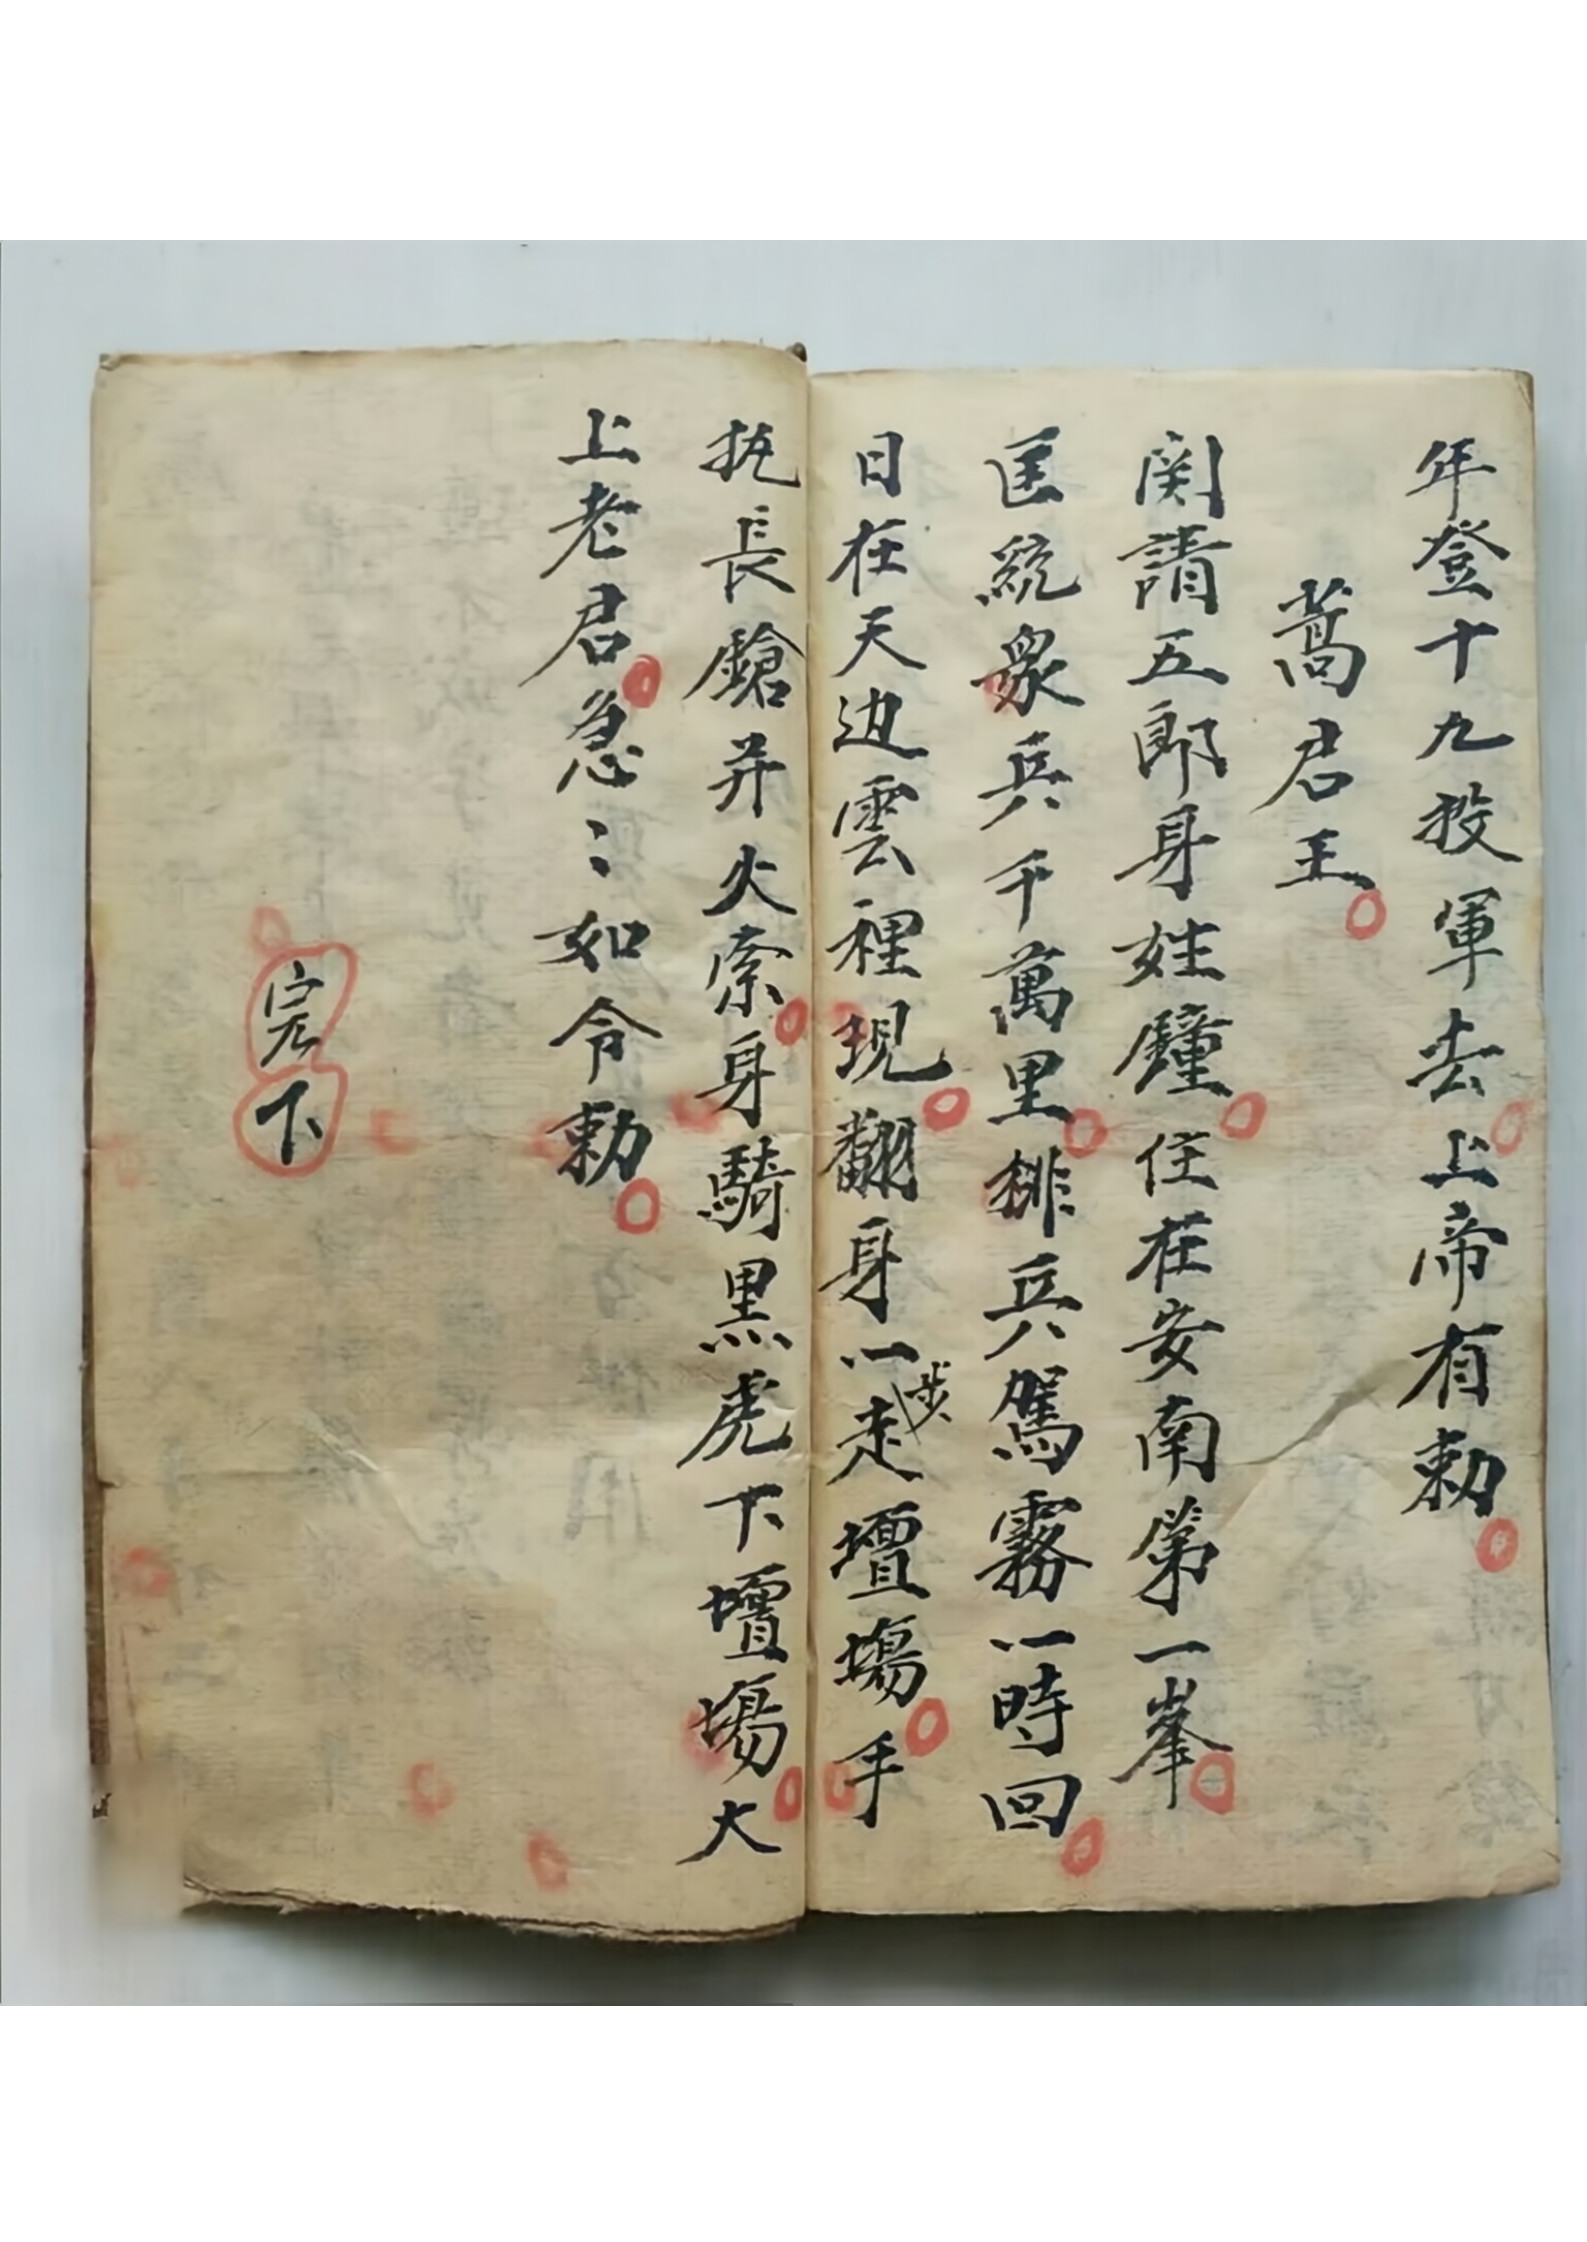 年登十九投軍去上帝有勅
蒿君王
関請五郎身姓鐘住在安南第一峯
匡統衆兵千萬里排兵駕霧一時回
日在天边雲裡現翻身一步走壇塲手
抚長鎗并火索身騎黑虎下壇塲大
上老君急〻如令勅
完下